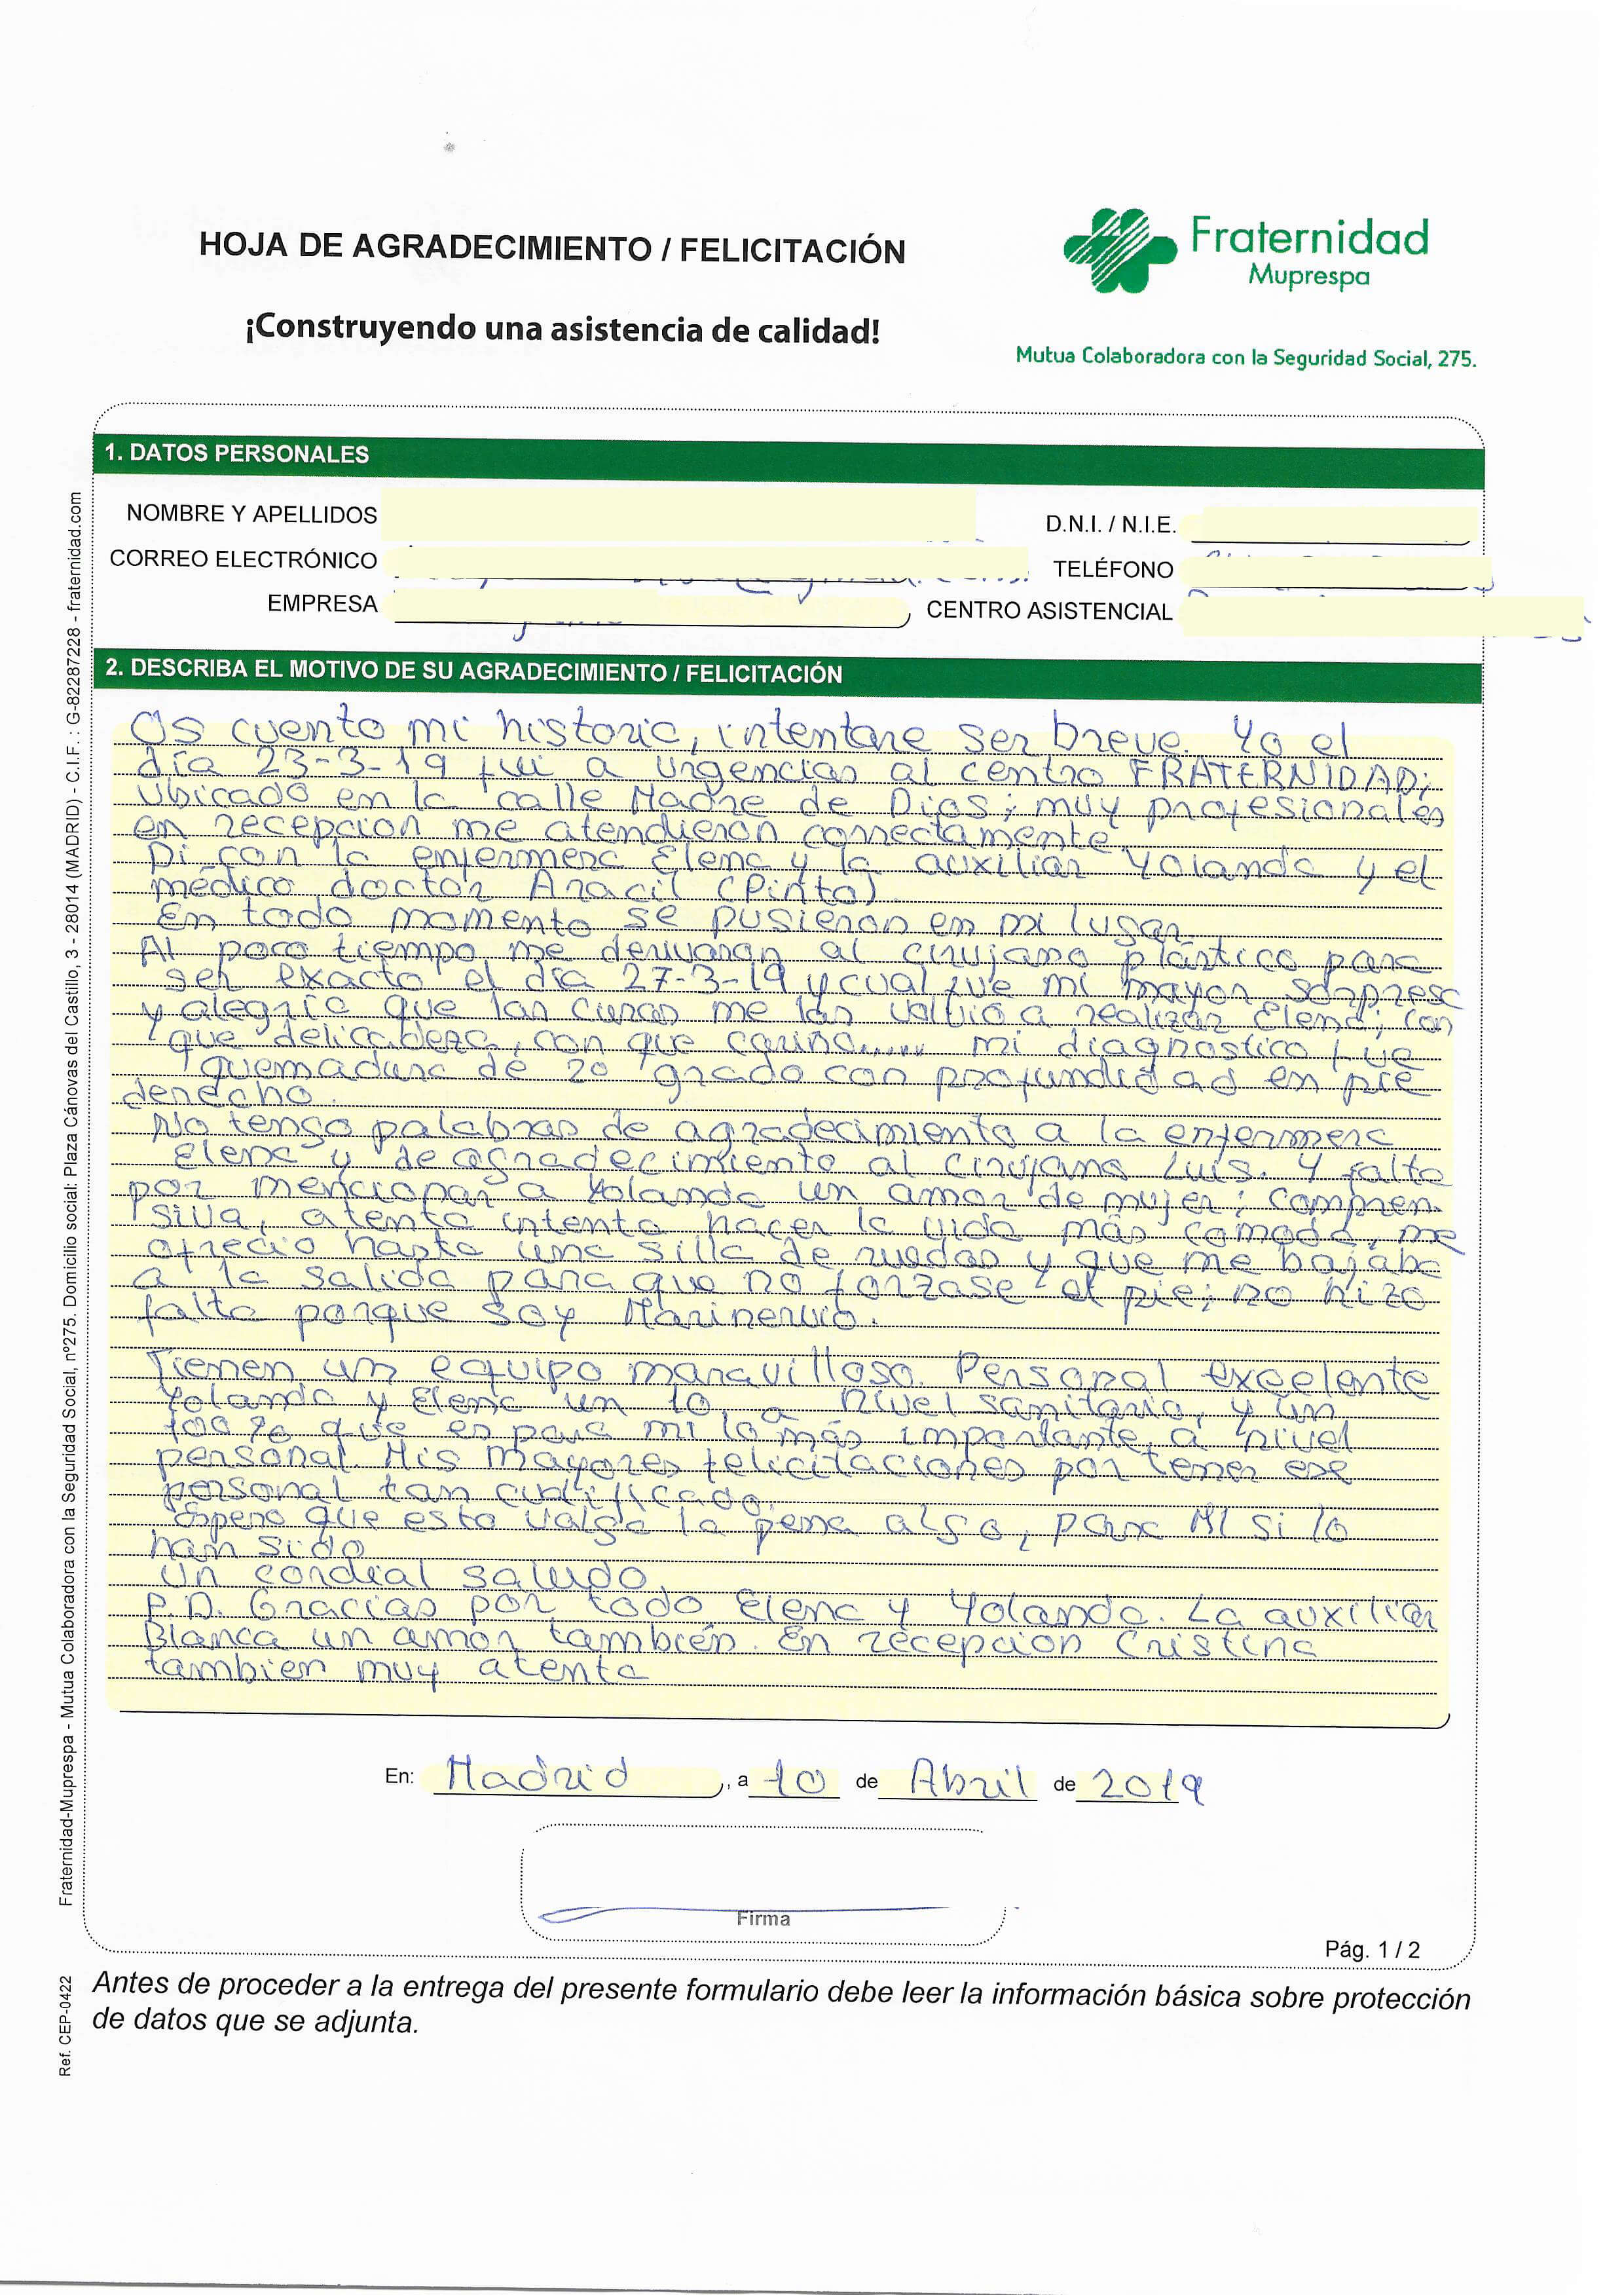 HOJA DE AGRADECIMIENTO / FELICITACIÓN
¡Construyendo una asistencia de calidad!
Fraternidad
Muprespa
Mutua Colaboradora con la Seguridad Social, 275.
1. DATOS PERSONALES
NOMBRE Y APELLIDOS
D.N.I. / N.I.E.
CORREO ELECTRÓNICO
TELÉFONO
EMPRESA
CENTRO ASISTENCIAL
2. DESCRIBA EL MOTIVO DE SU AGRADECIMIENTO / FELICITACIÓN
Os cuento mi historia, intentare ser breve. Yo el
día 23-3-19 fui a urgencias al centro FRATERNIDAD;
ubicado en la calle Madre de Dios; muy profesionales
en recepcion me atendieron correctamente.
Di con la enfermera Elena y la auxiliar Yolanda y el
médico doctor Aracil (Pinto)
En todo momento se pusieron en mi lugar.
Al poco tiempo me derivaron al cirujano plástico para
ser exacto el día 27-3-19 y cual fue mi mayor sorpresa
y alegría que las curas me las volvió a realizar Elena; con
que delicadeza, con que cariño..... mi diagnostico fue
quemadura de 2º grado con profundidad en pie
derecho.
No tengo palabras de agradecimiento a la enfermera
Elena y de agradecimiento al cirujano Luis. Y falta
por mencionar a Yolanda un amor de mujer; compren-
siva, atenta intento hacer la vida más comoda, me
ofrecio hasta una silla de ruedas y que me bajaba
a la salida para que no forzase el pie; no hizo
falta porque soy Marinervio.
Tienen un equipo maravilloso. Personal excelente
Yolanda y Elena un 10 a nivel sanitario, y un
100% que es para mi lo más importante, a nivel
personal. Mis mayores felicitaciones por tener ese
personal tan cualificado.
Espero que esto valga la pena algo, para MI si lo
han sido
Un cordial saludo.
P.D. Gracias por todo Elena y Yolanda. La auxiliar
Blanca un amor también. En recepcion Cristina
tambien muy atenta
En: Madrid, a 10 de Abril de 2019
Firma
Pág. 1 / 2
Antes de proceder a la entrega del presente formulario debe leer la información básica sobre protección
de datos que se adjunta.
Fraternidad-Muprespa - Mutua Colaboradora con la Seguridad Social, nº275. Domicilio social: Plaza Cánovas del Castillo, 3 - 28014 (MADRID) - C.I.F. : G-82287228 - fraternidad.com
Ref. CEP-0422